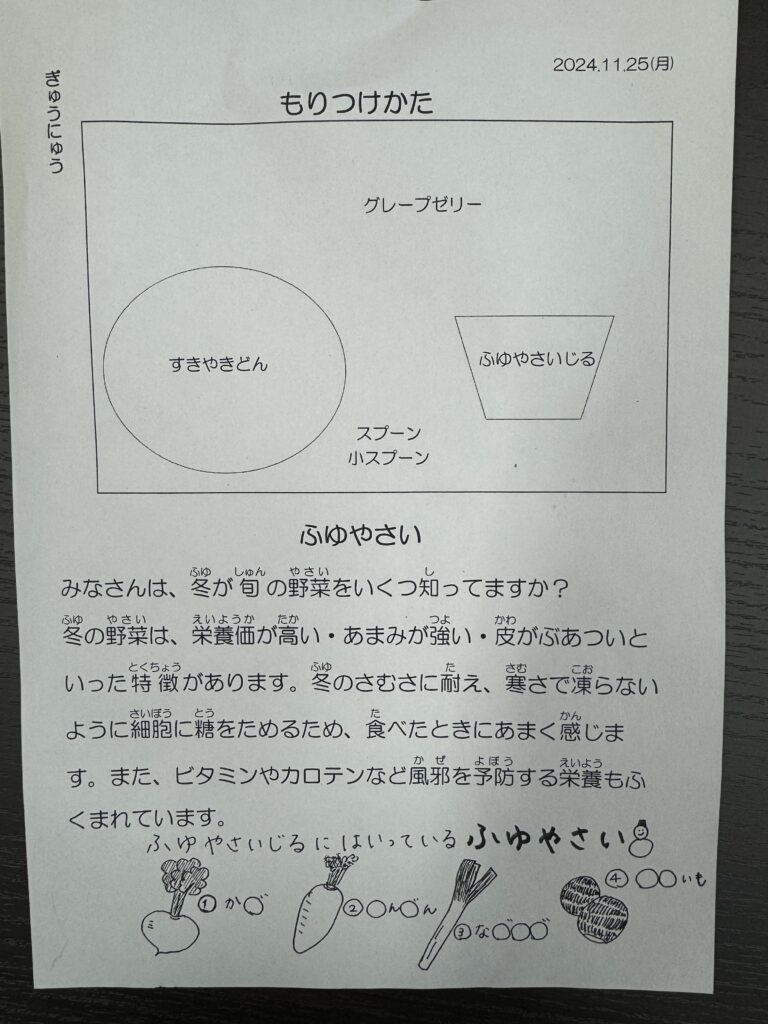 2024.11.25(月)
ぎゅうにゅう
もりつけかた
グレープゼリー
すきやきどん
ふゆやさいじる
スプーン
小スプーン
ふゆやさい
みなさんは、冬が旬の野菜をいくつ知ってますか？
冬の野菜は、栄養価が高い・あまみが強い・皮がぶあついと
いった特徴があります。冬のさむさに耐え、寒さで凍らない
ように細胞に糖をためるため、食べたときにあまく感じま
す。また、ビタミンやカロテンなど風邪を予防する栄養もふ
くまれています。
ふゆやさいじるにはいっているふゆやさい
①か○゛
②○ん○゛ん
③な○゛○○゛
④○○いも